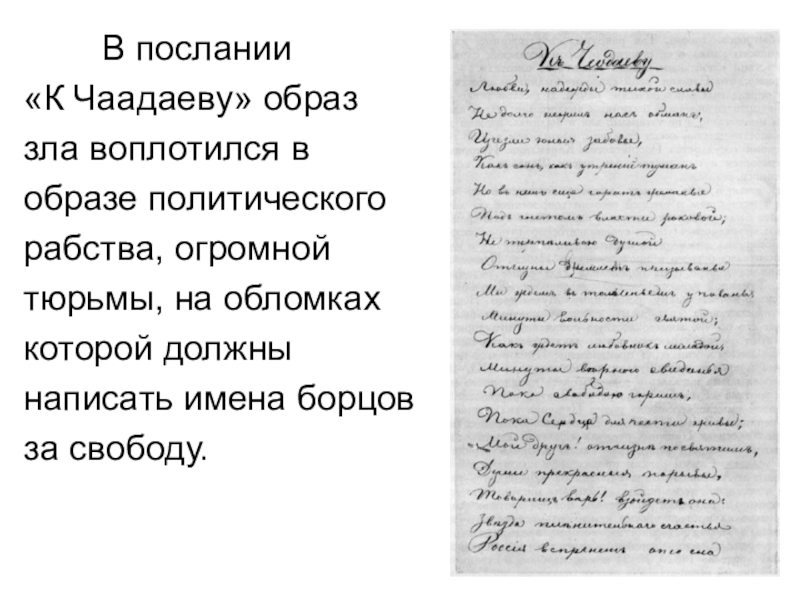 В послании
«К Чаадаеву» образ
зла воплотился в
образе политического
рабства, огромной
тюрьмы, на обломках
которой должны
написать имена борцов
за свободу.
Къ Чедаеву
Любви, надежды тихой славы
Не долго нежилъ насъ обманъ,
Изчезли юныя забавы,
Какъ сонъ, какъ утренній туманъ
Но въ насъ еще горятъ желанья
Подъ гнетомъ власти роковой;
Не терпеливою душой
Отчизны внемлемъ призыванья
Мы ждемъ въ томленьем упованья
Минуты вольности святой;
Какъ ждетъ любовникъ молодой
Минуты свиданья
Пока свободою горимъ,
Пока сердца для чести живы;
Мой другъ! отчизне посвятимъ,
Души прекрасныя порывы,
Товарищь верь! взойдетъ она:
Звезда пленительнаго счастья
Россія вспрянетъ ото сна